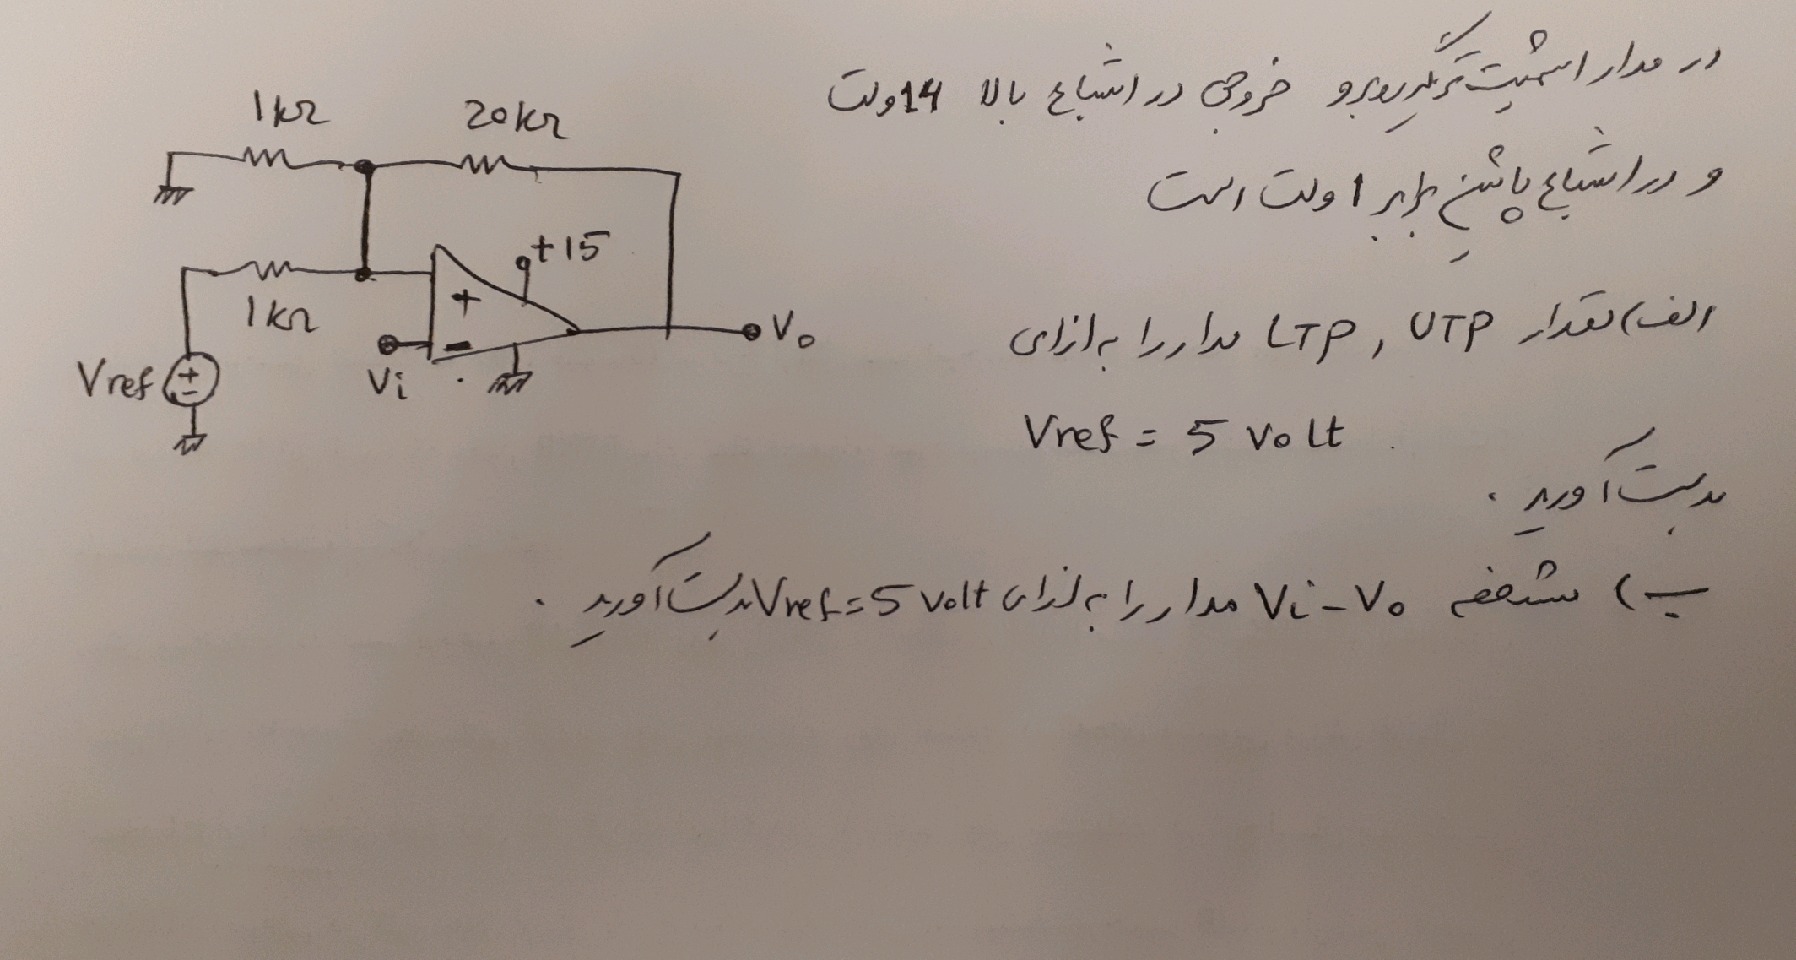 در مدار اشمیت تریگر روبرو خروجی در اشباع بالا 14 ولت
و در اشباع پائین برابر 1 ولت است
الف) مقدار UTP , LTP مدار را به ازای
Vref = 5 volt
بدست آورید .
ب) مشخصه Vi - Vo مدار را به ازای Vref = 5 volt بدست آورید .
1kΩ
20kΩ
+15
1kΩ
+
-
Vo
Vref
+
-
Vi